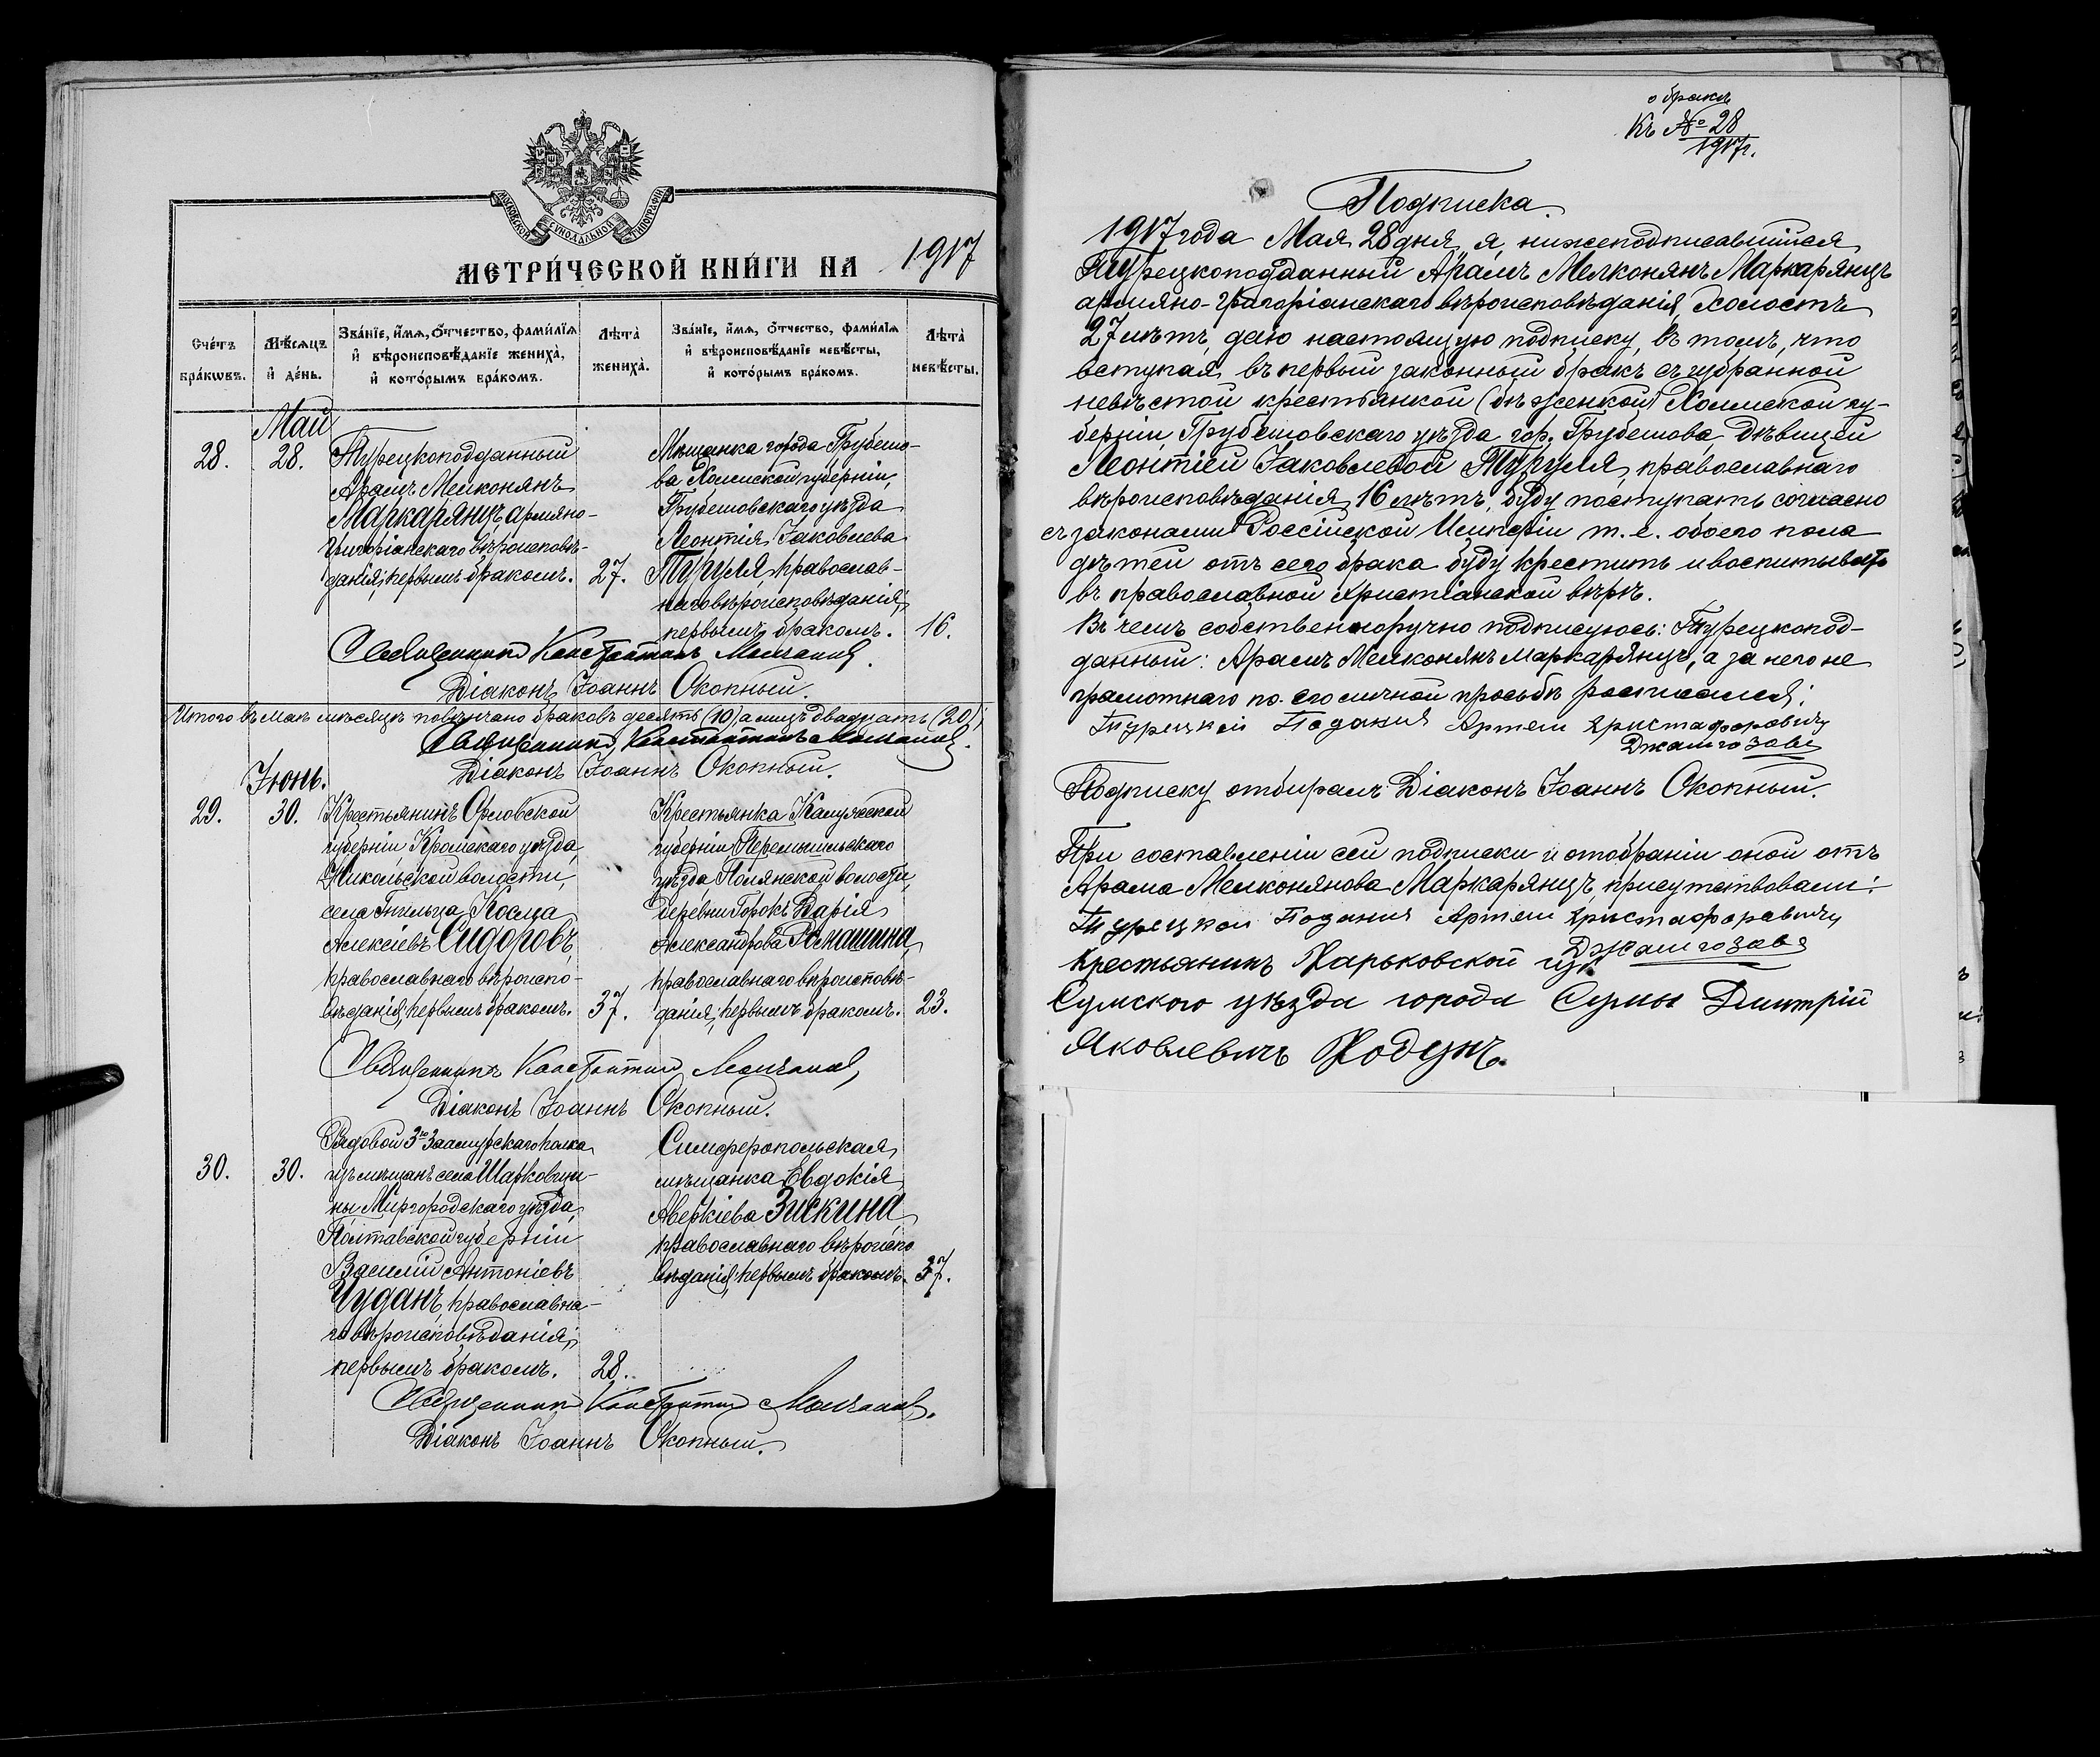 МОСКОВСКОЙ СѴНОДАЛЬНОЙ ТИПОГРАФІИ
МЕТРИ́ЧЕСКОЙ КНИ́ГИ НА 1917
Сче́тъ бра́кωвъ.
Мѣ́сяцъ и҆ де́нь.
Зва́нїе, и҆́мѧ, ѻ҆́тчество, фами́лїѧ и҆ вѣроисповѣ́данїе жениха̀, и҆ кото́рымъ бра́комъ.
Лѣта̀ жениха̀.
Зва́нїе, и҆́мѧ, ѻ҆́тчество, фами́лїѧ и҆ вѣроисповѣ́данїе невѣ́сты, и҆ кото́рымъ бра́комъ.
Лѣта̀ невѣ́сты.
Май
28. 28.
Турецкоподданный
Арамъ Мелконянъ
Маркарянцъ, армяно-
григоріанскаго вѣроисповѣ-
данія, первымъ бракомъ. 27.
Мѣщанка города Грубешо-
ва Холмской губерніи,
Грубешовскаго уѣзда
Леонтія Іаковлева
Тугуля, православ-
наго вѣроисповѣданія,
первымъ бракомъ. 16.
Священникъ Константинъ Молчановъ.
Діаконъ Іоаннъ Окопный.
Итого въ маѣ мѣсяцѣ повѣнчано браковъ десять (10), а лицъ двадцать (20).
Священникъ Константинъ Молчановъ.
Діаконъ Іоаннъ Окопный.
Іюнь.
29. 30.
Крестьянинъ Орловской
губерніи Кромскаго уѣзда,
Никольской волости,
села Гнильца Косма
Алексіевъ Сидоровъ,
православнаго вѣроиспо-
вѣданія, первымъ бракомъ. 37.
Крестьянка Калужской
губерніи Перемышльскаго
уѣзда, Полянской волости,
деревни Горокъ Дарія
Александрова Ромашина,
православнаго вѣроисповѣ-
данія, первымъ бракомъ. 23.
Священникъ Константинъ Молчановъ,
Діаконъ Іоаннъ Окопный.
30. 30.
Рядовой 3го Заамурскаго полка
изъ мѣщанъ села Шарковщи-
ны Миргородскаго уѣзда,
Полтавской губерніи
Василій Антоніевъ
Чуданъ, православна-
го вѣроисповѣданія,
первымъ бракомъ. 28.
Симферопольская
мѣщанка Евдокія
Аверкіева Зискина,
православнаго вѣроиспо
вѣданія, первымъ бракомъ. 37.
Священникъ Константинъ Молчановъ.
Діаконъ Іоаннъ Окопный.
о бракѣ
Къ № 28
1917г.
Подписка.
1917 года Мая 28 дня я, нижеподписавшійся
Турецкоподданный Арамъ Мелконянъ Маркарянцъ
армяно-григоріанскаго вѣроисповѣданія, холостъ
27 лѣтъ, даю настоящую подписку, въ томъ, что
вступая въ первый законный бракъ съ избранной
невѣстой крестьянкой (бѣженкой) Холмской гу-
берніи, Грубешовскаго уѣзда гор. Грубешова, дѣвицей
Леонтіей Іаковлевой Тугуля, православнаго
вѣроисповѣданія, 16 лѣтъ, буду поступать согласно
съ законами Россійской Имперіи т. е. обоего пола
дѣтей отъ сего брака буду крестить и воспитывать
въ православной христіанской вѣрѣ.
Въ чемъ собственноручно подписуюсь: Турецкопод-
данный: Арамъ Мелконянъ Маркарянцъ, а за него не
грамотнаго по его личной просьбѣ росписался:
Турецкой Подания Артем Христафоровичу
Джамгозове
Подписку отбиралъ Діаконъ Іоаннъ Окопный.
При составленіи сей подписки и отобраніи оной отъ
Арама Мелконянова Маркарянцъ, присутствовали:
Турецкой Подания Артем Христафоровичу
Джамгозове
Крестьянинъ Харьковской гу.
Сумского уѣзда города Сумы Дмитрій
Яковлевичъ Ходунъ.